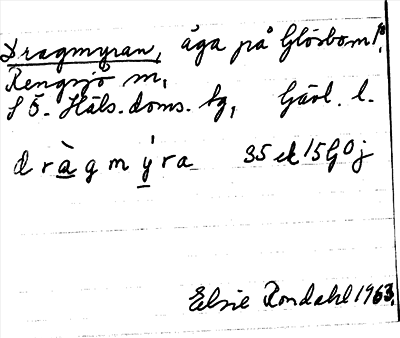 Dragmyran, äga på Glösbom P,
Rengsjö m,
S Ö. Häls. doms. bg, Gävl. l.
d r à g m ý r a 35 ek 15 G 0 j
Elsie Rondahl 1963.